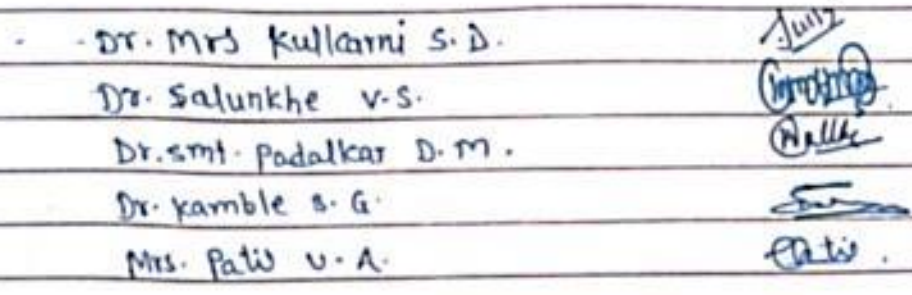 Dr. Mrs Kulkarni S. D.
Dr. Salunkhe V. S.
Dr. Smt. Padalkar D. M.
Dr. Kamble S. G.
Mrs. Patil V. A.